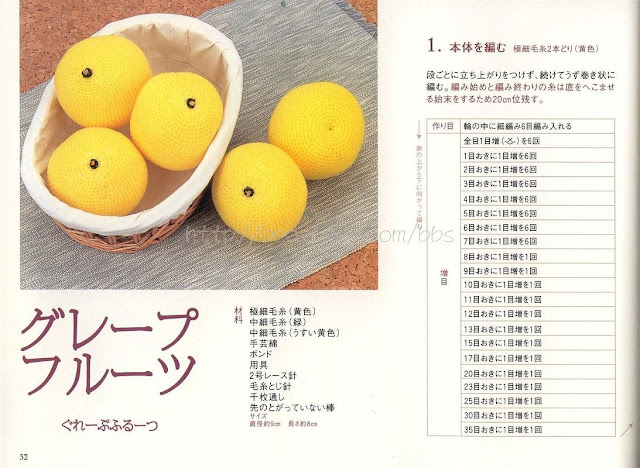 グレープ
フルーツ
ぐれーぷふるーつ
材料
極細毛糸(黄色)
中細毛糸(緑)
中細毛糸(うすい黄色)
手芸綿
ボンド
用具
2号レース針
毛糸とじ針
千枚通し
先のとがっていない棒
サイズ
直径約9cm 長さ約8cm
32
1. 本体を編む 極細毛糸2本どり(黄色)
段ごとに立ち上がりをつけず、続けてうず巻き状に
編む。編み始めと編み終わりの糸は底をへこませ
る始末をするため20cm位残す。
表の上から下に向かって編む
作り目 輪の中に細編み6目編み入れる
増目
全目1目増()を6回
1目おきに1目増を6回
2目おきに1目増を6回
3目おきに1目増を6回
4目おきに1目増を6回
5目おきに1目増を6回
6目おきに1目増を6回
7目おきに1目増を6回
8目おきに1目増を1回
9目おきに1目増を1回
10目おきに1目増を1回
11目おきに1目増を1回
12目おきに1目増を1回
13目おきに1目増を1回
15目おきに1目増を1回
17目おきに1目増を1回
20目おきに1目増を1回
23目おきに1目増を1回
25目おきに1目増を1回
30目おきに1目増を1回
35目おきに1目増を1回